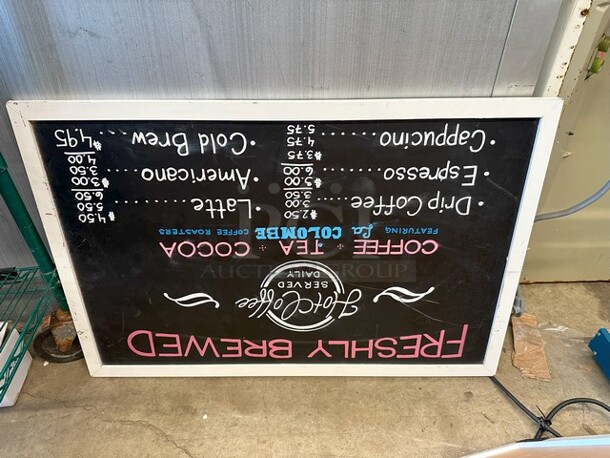 FRESHLY BREWED
Hot Coffee
SERVED
DAILY
COFFEE + TEA + COCOA
FEATURING La COLOMBE COFFEE ROASTERS
• Drip Coffee ...... $2.50
3.00
3.50
• Espresso........
6.00
• Cappucino........ $3.75
4.75
5.75
• Latte........ $4.50
5.50
6.50
• Americano.... $3.00
3.50
4.00
• Cold Brew..... $4.95
GROUP